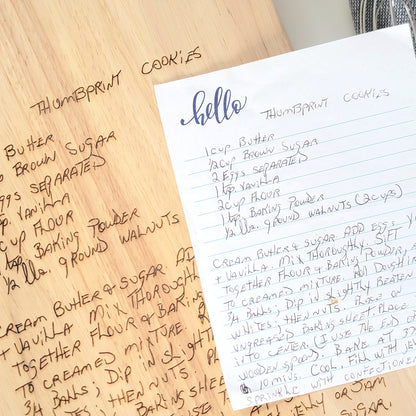 THUMBPRINT COOKIES
BUTTER
CUP BROWN SUGAR
EGGS SEPARATED
VANILLA
CUP FLOUR
BAKING POWDER
GROUND WALNUTS
CREAM BUTTER & SUGAR ADD
+ VANILLA. MIX THOROUGHLY
TOGETHER FLOUR & BAKING
TO CREAMED MIXTURE.
3/4 BALLS; DIP IN SLIGHTLY
WHITES; THEN NUTS. PLACE
BAKING
hello
THUMBPRINT COOKIES
1 CUP BUTTER
1/2 CUP BROWN SUGAR
2 EGGS SEPARATED
1 tsp VANILLA
2 CUP FLOUR
BAKING POWDER
1/2 lb. GROUND WALNUTS (2 CUPS)
CREAM BUTTER & SUGAR ADD EGG
+ VANILLA. MIX THOROUGHLY. SIFT
TOGETHER FLOUR & BAKING POWDER,
TO CREAMED MIXTURE. ROLL DOUGH
3/4 BALLS; DIP IN SLIGHTLY BEATEN
WHITES; THEN NUTS. PLACE ON
UNGREASED BAKING SHEET. PLACE
INTO CENTER, (I USE THE END OF
WOODEN SPOON). BAKE AT
10 MINS. COOL. FILL WITH
SPRINKLE WITH CONFECTIONER